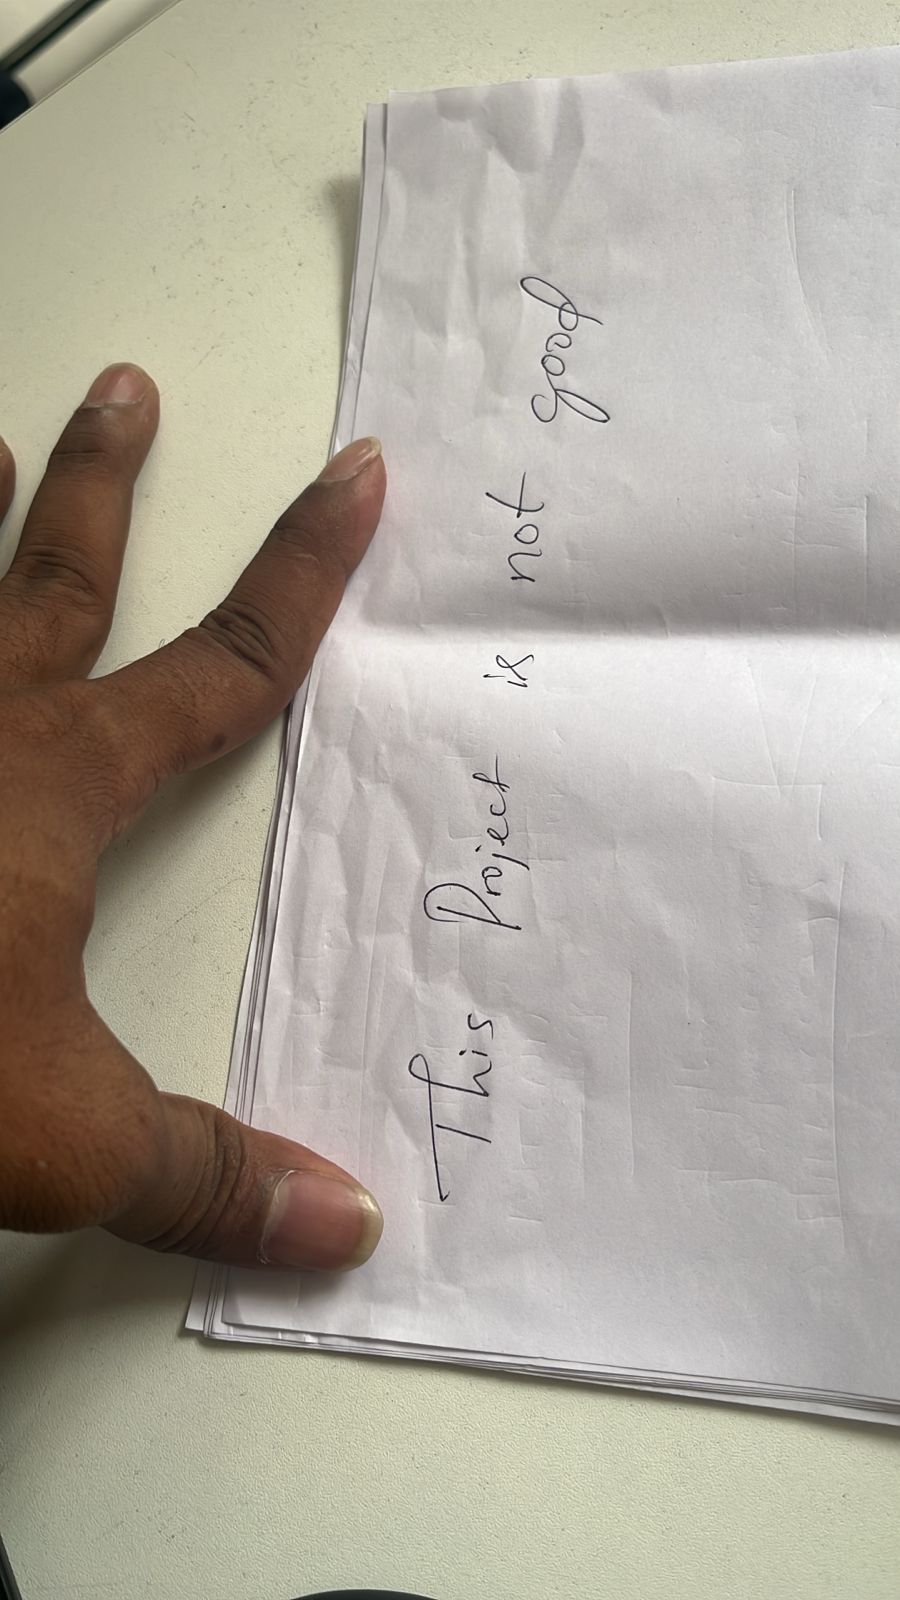 This Project is not good